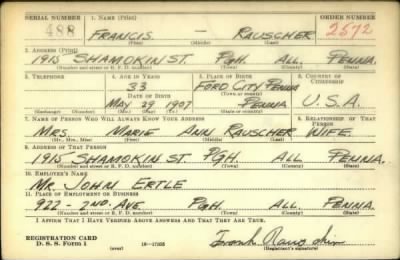 SERIAL NUMBER 1. NAME (Print) ORDER NUMBER
488 FRANCIS — RAUSCHER 2572
(First) (Middle) (Last)
2. ADDRESS (Print)
1915 SHAMOKIN ST. PGH. ALL. PENNA.
(Number and street or R. F. D. number) (Town) (County) (State)
3. TELEPHONE 4. AGE IN YEARS 5. PLACE OF BIRTH 6. COUNTRY OF CITIZENSHIP
33 FORD CITY PENNA
DATE OF BIRTH (Town or county)
MAY 29 1907 PENNA U.S.A.
(Exchange) (Number) (Mo.) (Day) (Yr.) (State or country)
7. NAME OF PERSON WHO WILL ALWAYS KNOW YOUR ADDRESS 8. RELATIONSHIP OF THAT PERSON
MRS. MARIE ANN RAUSCHER WIFE.
(Mr., Mrs., Miss) (First) (Middle) (Last)
9. ADDRESS OF THAT PERSON
1915 SHAMOKIN ST. PGH. ALL PENNA.
(Number and street or R. F. D. number) (Town) (County) (State)
10. EMPLOYER'S NAME
MR. JOHN ERTLE
11. PLACE OF EMPLOYMENT OR BUSINESS
922 - 2ND. AVE PGH. ALL. PENNA.
(Number and street or R. F. D. number) (Town) (County) (State)
I AFFIRM THAT I HAVE VERIFIED ABOVE ANSWERS AND THAT THEY ARE TRUE.
REGISTRATION CARD
D. S. S. Form 1 (over) (Registrant's signature)